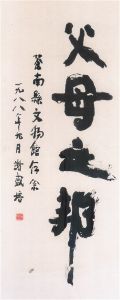 父母之邦
苍南县文物馆存念
一九八八年九月